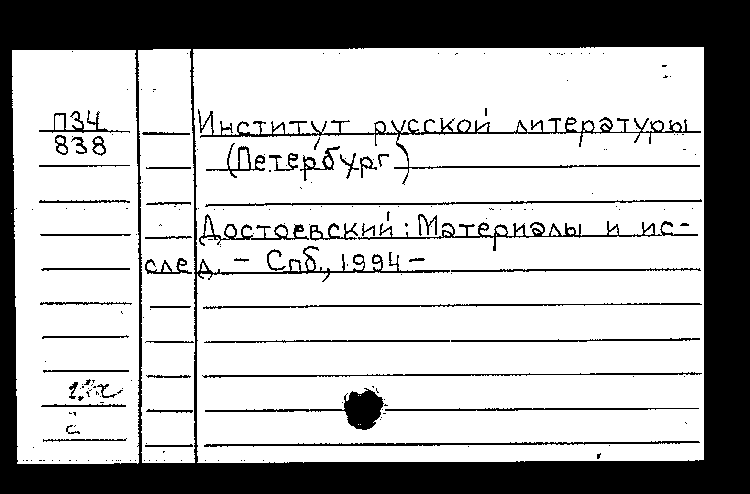 П34
838
Институт русской литературы
(Петербург)
Достоевский: Материалы и ис-
след. - Спб., 1994 -